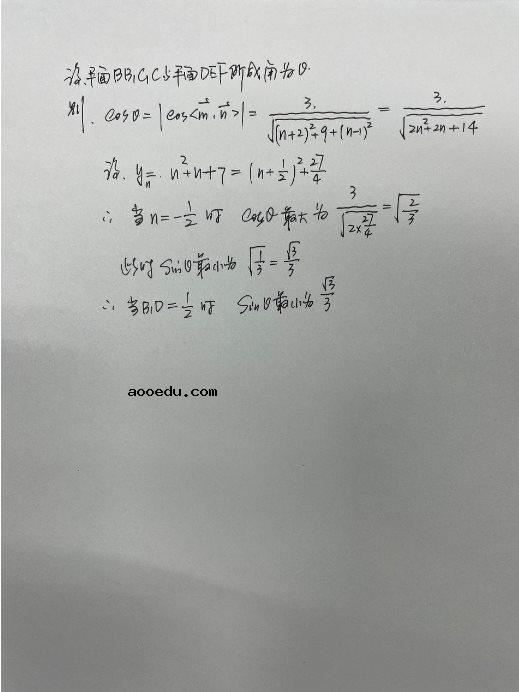 设平面BB₁C₁C与平面DEF所成角为θ.
则. cosθ = |cos<m⃗, n⃗>| = 3. / √((n+2)²+9+(n-1)²) = 3. / √(2n²+2n+14)
设. yₙ = n²+n+7 = (n+1/2)²+27/4
∴ 当n=-1/2时 cosθ最大为 3/√(2×27/4) = √(2/3)
此时 sinθ最小为 √(1/3) = √3/3
∴ 当B₁D=1/2时 sinθ最小为 √3/3
aooedu.com